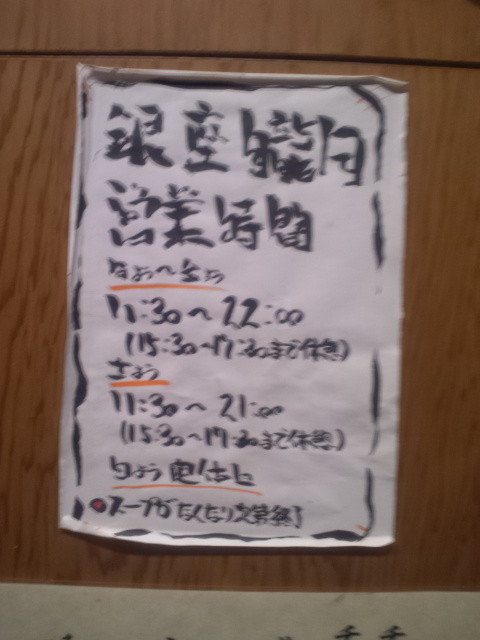 銀座朧月
営業時間
月よう〜金よう
11:30〜22:00
(15:30〜17:30まで休憩)
土よう
11:30〜21:00
(15:30〜17:30まで休憩)
日よう定休日
●スープがなくなり次第終了